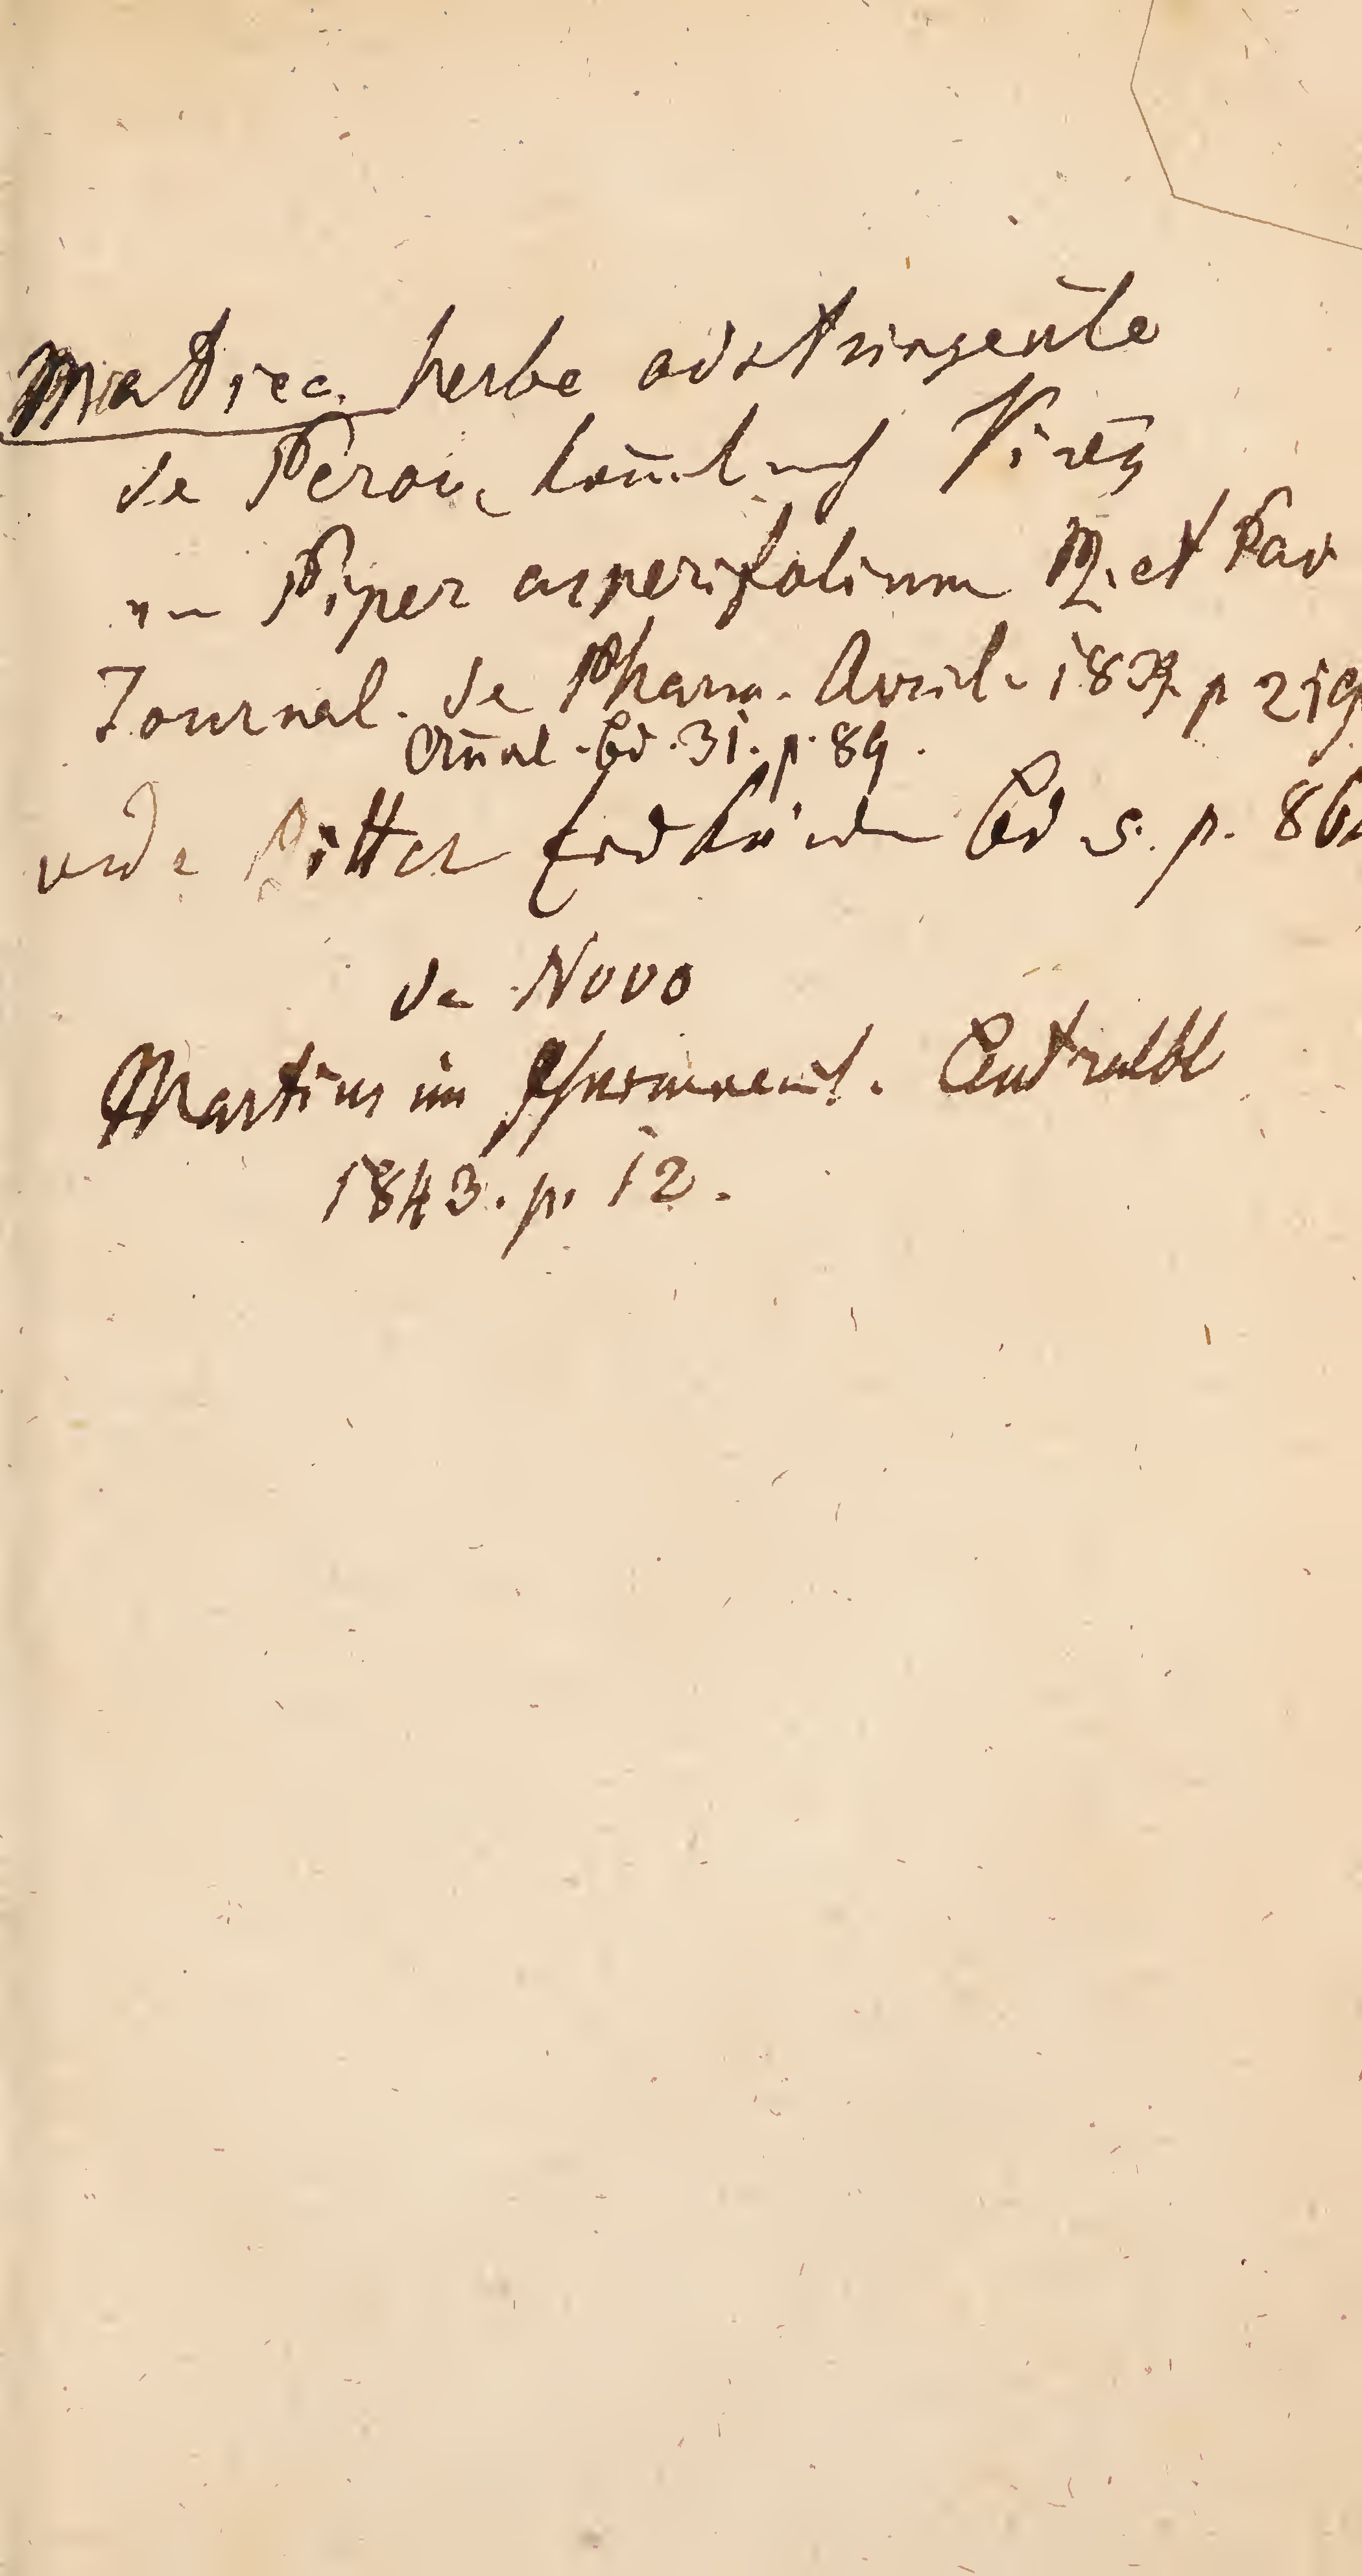 Matiec. herbe adstringente
de Perou, kom̅t nach Virey
von Piper asperifolium R. et Pav
Journal. de Pharm. Avril. 1837 p 219
An̅al. Bd. 31. p. 89.
vide Ritter Erdkunde Bd 5. p. 86
de Novo
Martius im Pharmaceut. Centralbl
1843. p. 12.